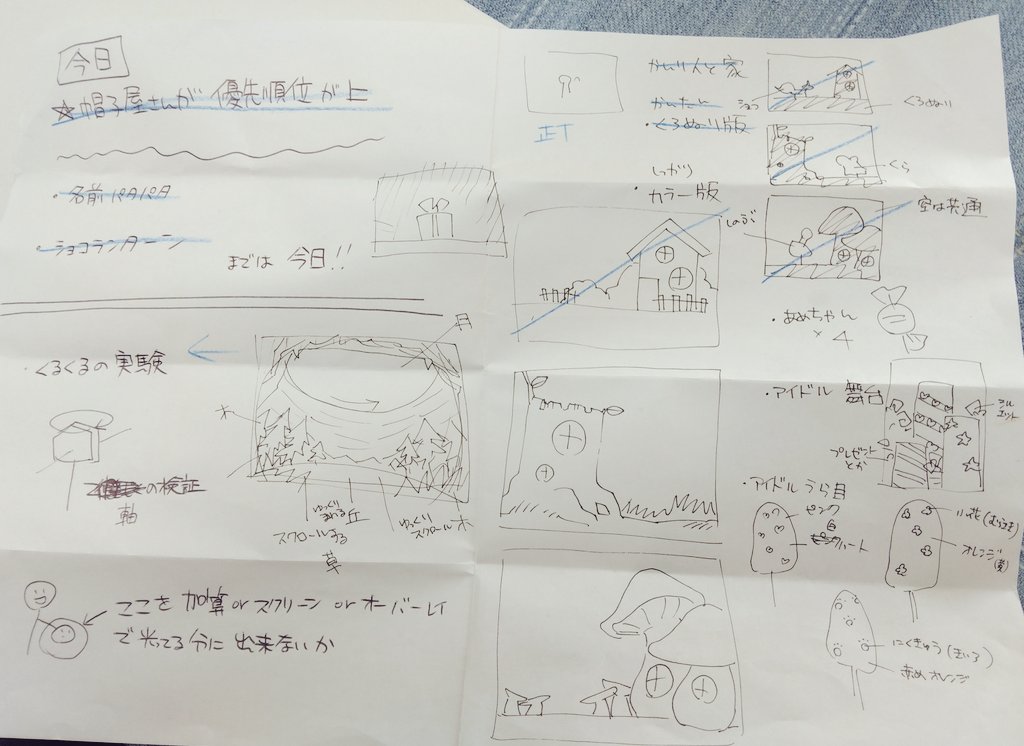 今日
☆帽子屋さんが 優先順位が上
・名前パタパタ
・ショコランターン
までは 今日!!
・くるくるの実験
の検証
軸
月
木
ゆっくり
丘
スクロールする
草
ゆっくり
スクロール
木
ここを 加算orスクリーン orオーバーレイ
で光ってる分に 出来ないか
正丅
家
かんたん
・くろぬり版
くろぬり
しっかり
・カラー版
くら
空は共通
・あめちゃん
×4
・アイドル 舞台
シル
エット
プレゼント
とか
・アイドルうら目
ピンク
白
ハート
小花(むらさき)
オレンジ
(黄)
にくきゅう(きいろ)
オレンジ